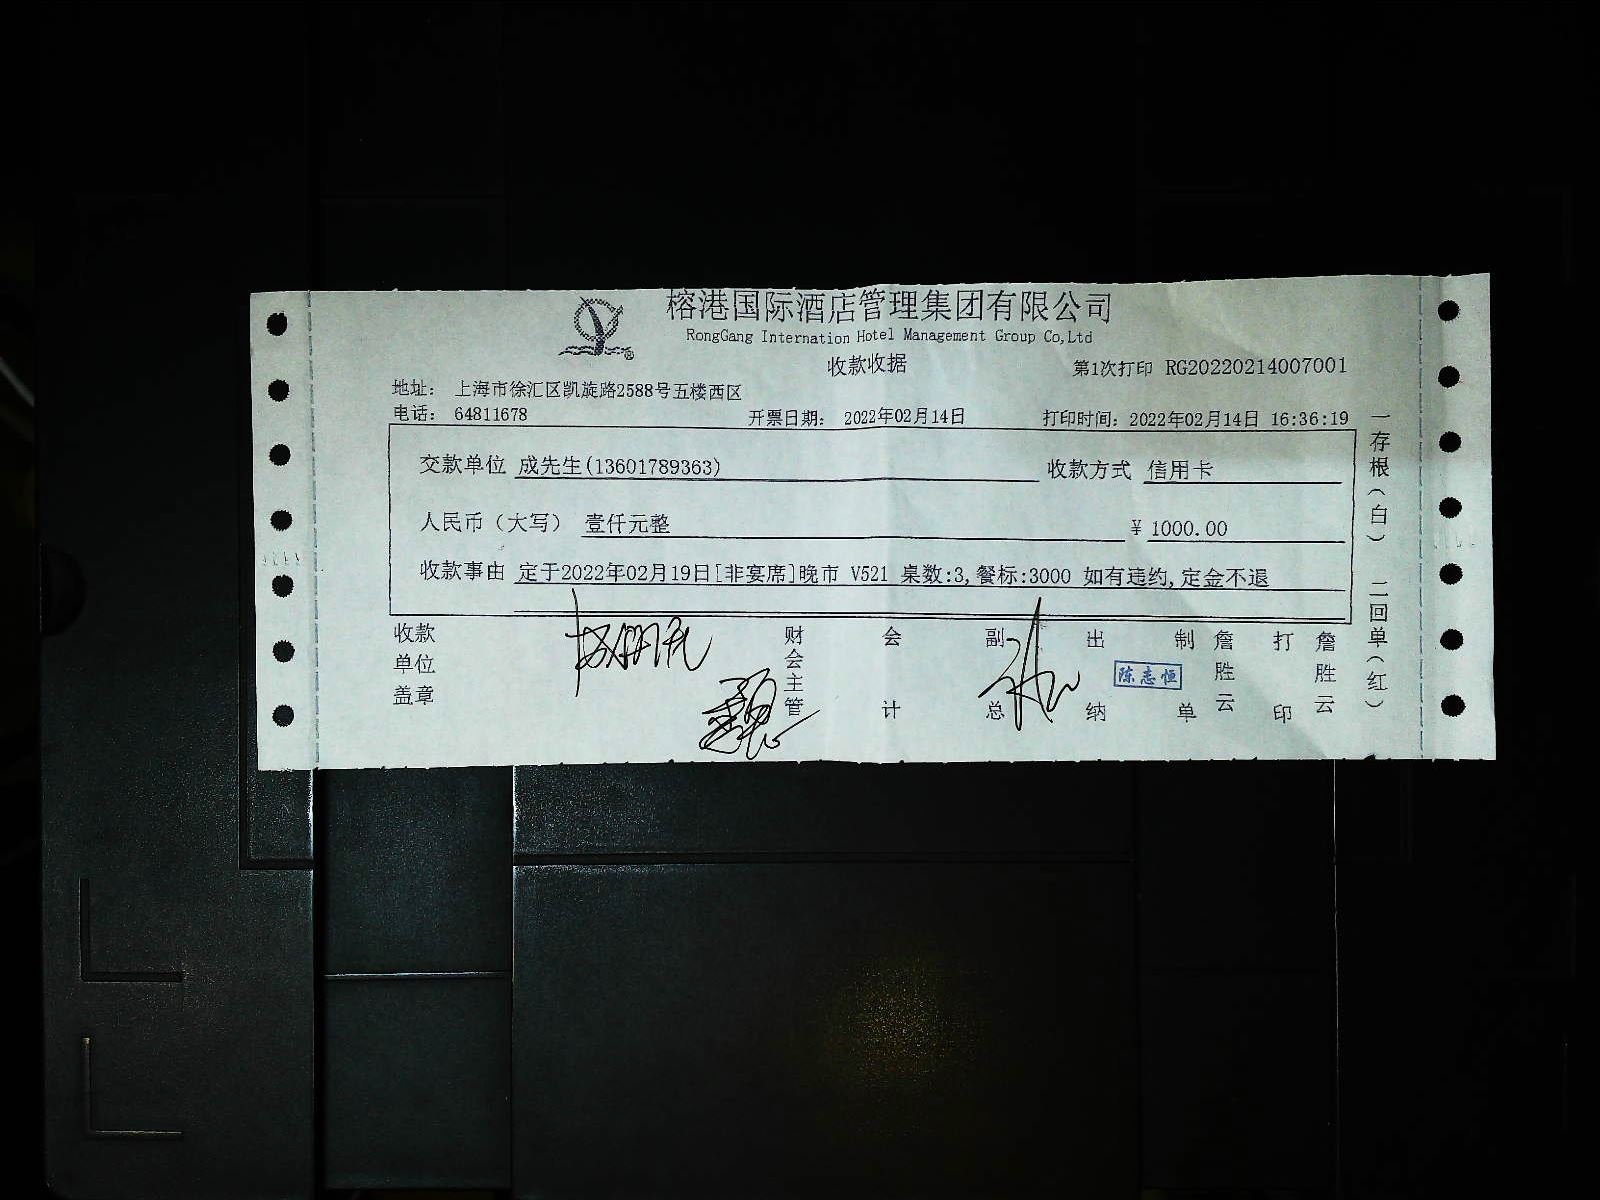 榕港国际酒店管理集团有限公司
RongGang Internation Hotel Management Group Co,Ltd
收款收据
第1次打印 RG20220214007001
地址: 上海市徐汇区凯旋路2588号五楼西区
电话: 64811678 开票日期: 2022年02月14日 打印时间: 2022年02月14日 16:36:19
交款单位 成先生(13601789363) 收款方式 信用卡
人民币(大写) 壹仟元整 ¥ 1000.00
收款事由 定于2022年02月19日[非宴席]晚市 V521 桌数:3,餐标:3000 如有违约,定金不退
收款单位盖章
财会主管
会计
副总
出纳
陈志恒
制单
詹胜云
打印
詹胜云
一存根(白) 二回单(红)